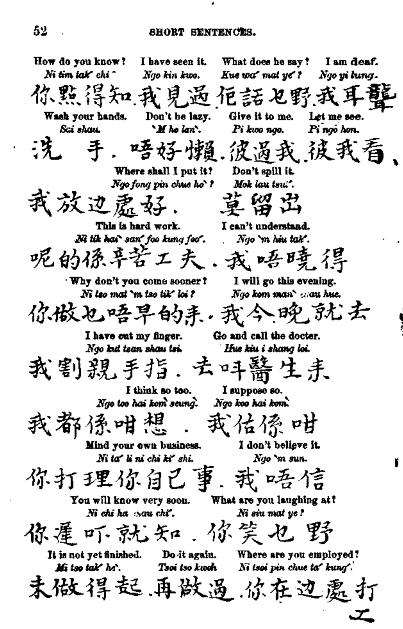 52 SHORT SENTENCES.
How do you know? I have seen it. What does he say? I am deaf.
Ni tim tak‘ chi ‘ Ngo kin kwo. Kue wa‘ mat ye‘ ? Ngo yi lung.
你點得知.我見過.佢話乜野.我耳聾
Wash your hands. Don't be lazy. Give it to me. Let me see.
Sai shau. ‘M ho lan‘. Pi kwo ngo. Pi ngo hon.
洗手.唔好懶.彼過我.彼我看.
Where shall I put it? Don't spill it.
Ngo fong pin chue ho‘ ? Mok lau tsu‘.
我放边處好.莫留出
This is hard work. I can't understand.
Ni tik hai‘ san‘ foo kung foo‘. Ngo ‘m hiu tak‘.
呢的係辛苦工夫.我唔曉得
Why don't you come sooner? I will go this evening.
Ni tso mat ‘m tso tik‘ loi ? Ngo kom man‘ tsau hue.
你做乜唔早的来.我今晚就去
I have cut my finger. Go and call the docter.
Ngo kut tsan shau tsi. Hue kiu i shang loi.
我割親手指.去呌醫生来
I think so too. I suppose so.
Ngo too hai kom‘ seung‘. Ngo koo hai kom‘.
我都係咁想.我估係咁
Mind your own business. I don't believe it.
Ni ta‘ li ni chi ki‘ shi. Ngo ‘m sun.
你打理你自己事.我唔信
You will know very soon. What are you laughing at?
Ni chi ha tsau chi‘. Ni siu mat ye ?
你遲吓就知.你笑乜野
It is not yet finished. Do it again. Where are you employed?
Mi tso tak‘ he‘. Tsoi tso kwoh Ni tsoi pin chue ta‘ kung‘.
未做得起.再做過.你在边處打
工